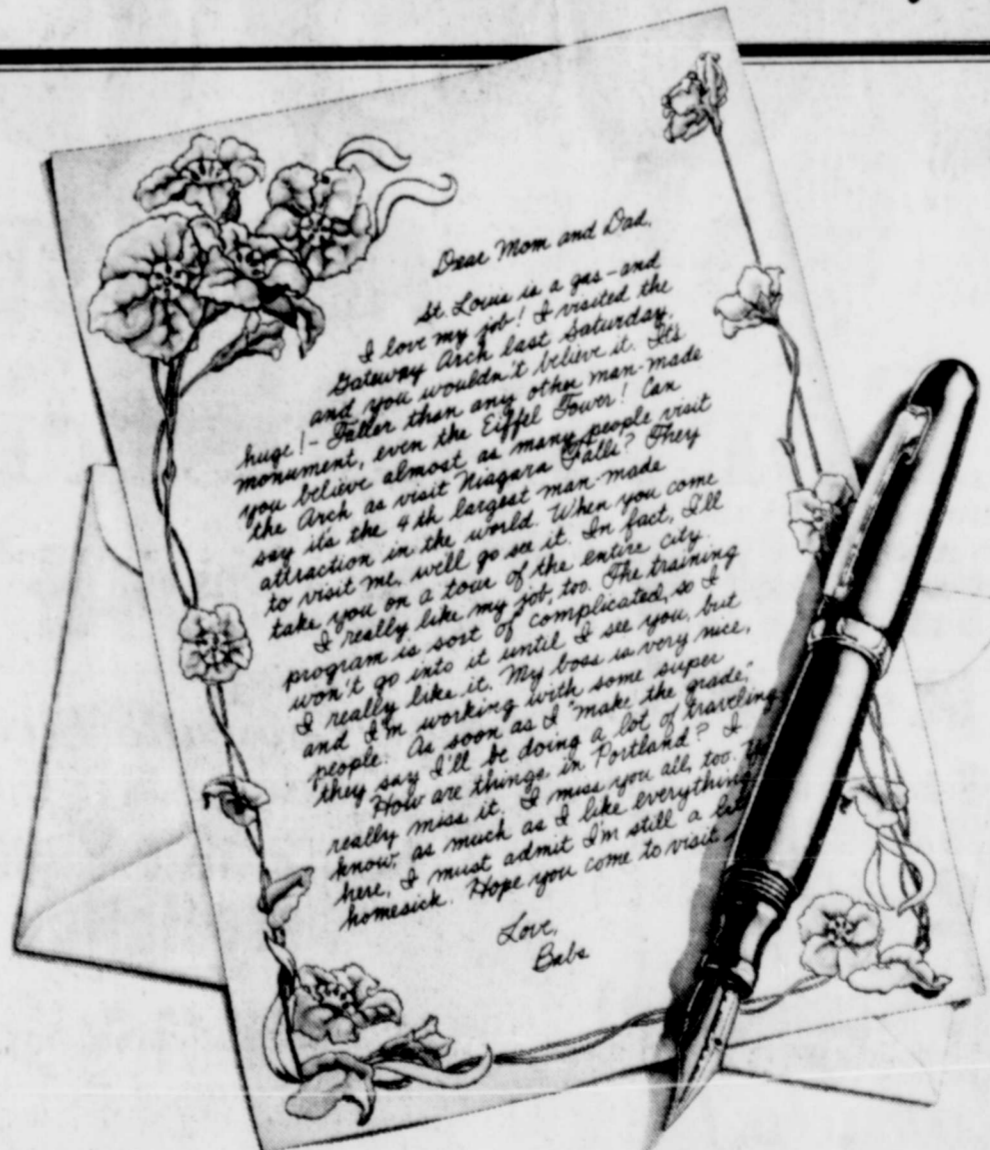 Dear Mom and Dad,
St. Louis is a gas - and
I love my job! I visited the
Gateway Arch last Saturday,
and you wouldn't believe it. It's
huge! - Taller than any other man-made
monument, even the Eiffel Tower! Can
you believe almost as many people visit
the Arch as visit Niagara Falls? They
say its the 4th largest man-made
attraction in the world. When you come
to visit me, we'll go see it. In fact, I'll
take you on a tour of the entire city.
I really like my job, too. The training
program is sort of complicated, so I
won't go into it until I see you, but
I really like it. My boss is very nice,
and I'm working with some super
people. As soon as I "make the grade,"
they say I'll be doing a lot of traveling
How are things in Portland? I
really miss it. I miss you all, too.
know, as much as I like everything
here, I must admit I'm still a
homesick. Hope you come to visit
Love,
Babs